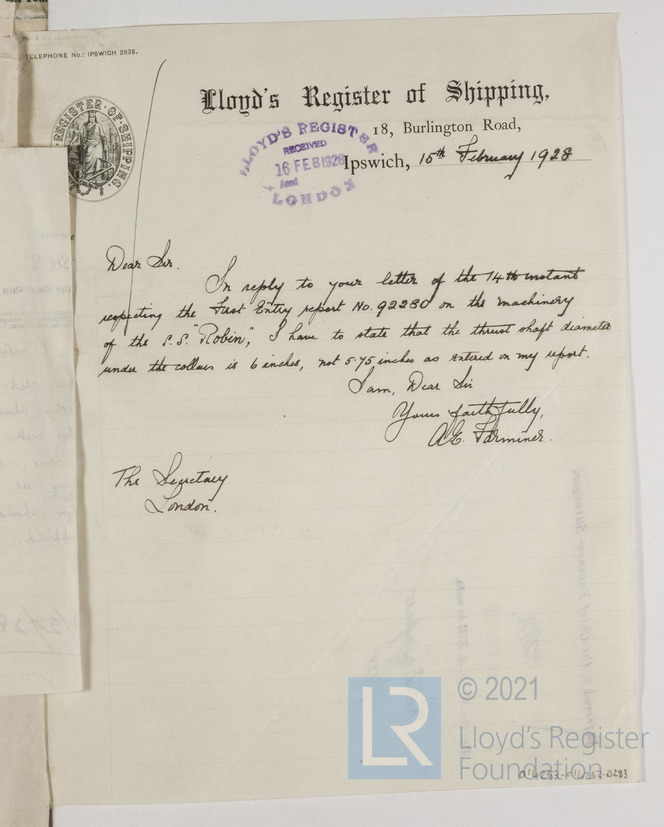 TELEPHONE No.: IPSWICH 2636.
Lloyd's Register of Shipping,
18, Burlington Road,
Ipswich, 15th February 1928
LLOYD'S REGISTER
RECEIVED
16 FEB 1928
LONDON
REGISTER OF SHIPPING
Dear Sir.
In reply to your letter of the 14th instant
respecting the First Entry report No. 92280 on the machinery
of the S.S. "Robin", I have to state that the thrust shaft diameter
under the collars is 6 inches, not 5.75 inches as entered on my report.
I am, Dear Sir
Yours faithfully,
A.E. Farminer.
The Secretary
London.
LR
© 2021
Lloyd's Register
Foundation